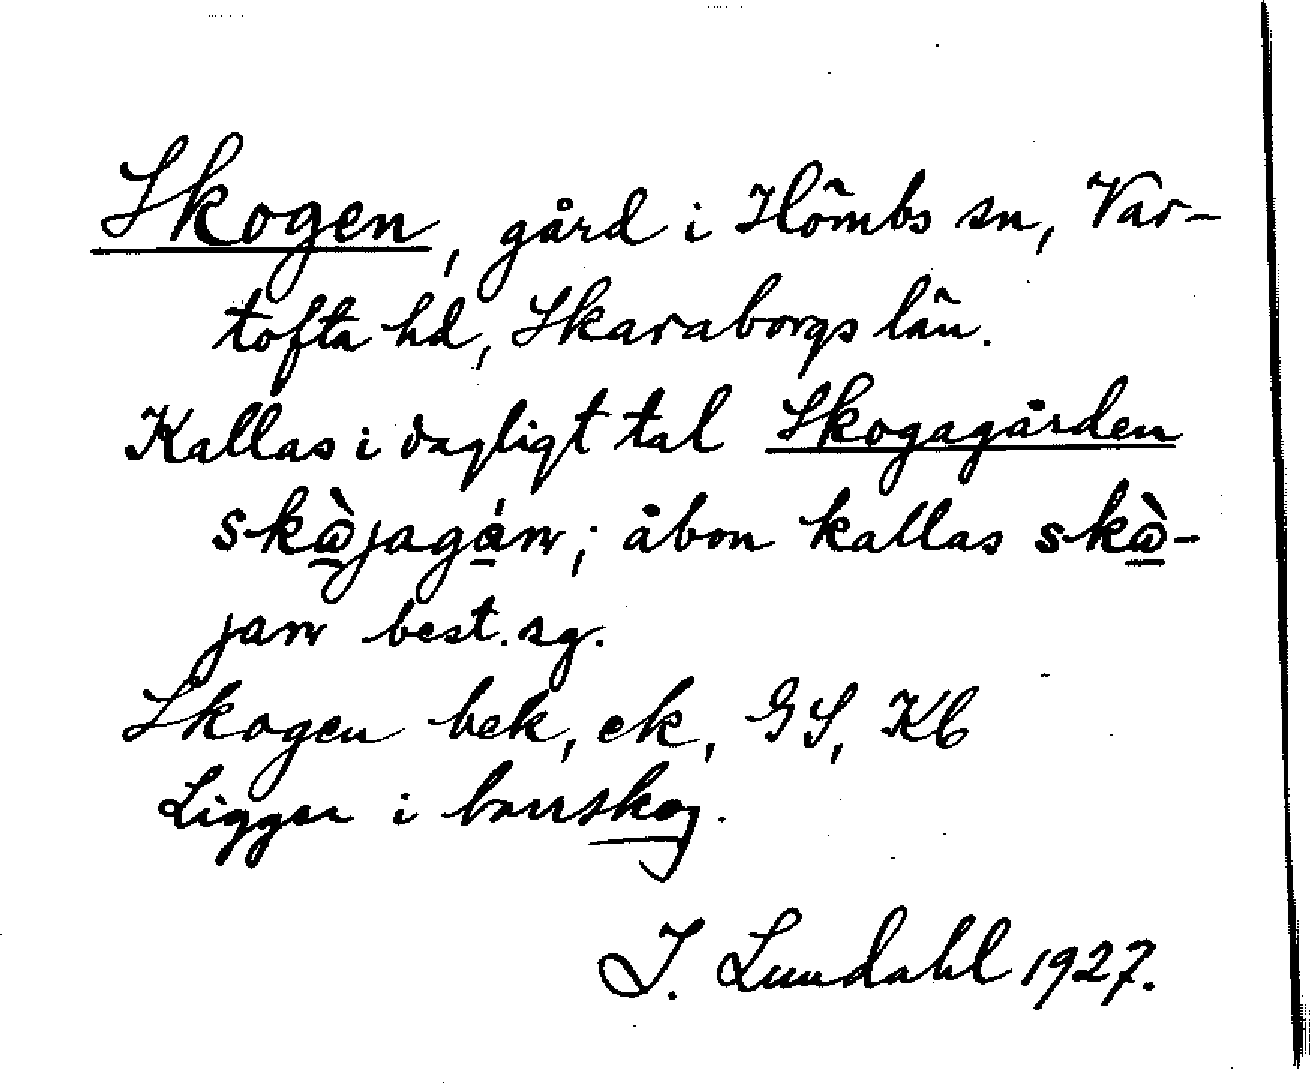 Skogen, gård i Hömbs sn, Var-
tofta hd, Skaraborgs län.
Kallas i dagligt tal Skogagården
skàjagán; åbon kallas skà-
jan best. sg.
Skogen bek, ek, GS, Kb
Ligger i barrskog.
I. Lundahl 1927.